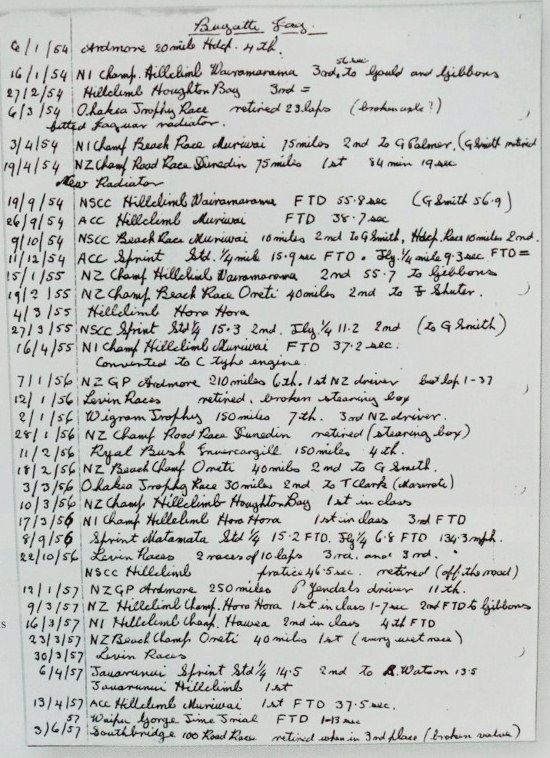 Bugatti Jag.
6/1/54 Ardmore 20 mile Hdcp. 4th.
16/1/54 NI Champ. Hillclimb Wairamarama 3rd, 56 sec to Gould and Gibbons
27/2/54 Hillclimb Houghton Bay 3rd =
6/3/54 Ohakea Trophy Race retired 23 laps (broken axle?)
fitted Jaguar radiator.
3/4/54 NI Champ Beach Race Muriwai 75 miles 2nd to G Palmer, (G Smith retired
19/4/54 NZ Champ Road Race Dunedin 75 miles 1st 84 min 19 sec
New Radiator
19/9/54 NSCC Hillclimb Wairamarama FTD 55.8 sec (G Smith 56.9)
26/9/54 ACC Hillclimb Muriwai FTD 38.7 sec
9/10/54 NSCC Beach Race Muriwai 10 miles 2nd to G Smith, Hdcp. Race 10 miles 2nd.
11/12/54 ACC Sprint Std. 1/4 mile 15.9 sec FTD. Fly. 1/4 mile 9.3 sec FTD =
15/1/55 NZ Champ Hillclimb Wairamarama 2nd 55.7 to Gibbons
19/2/55 NZ Champ Beach Race Oreti 40 miles 2nd to F Shuter.
4/3/55 Hillclimb Hora Hora
27/3/55 NSCC Sprint Std 1/4 15.3 2nd. Fly 1/4 11.2 2nd (to G Smith)
16/4/55 NI Champ Hillclimb Muriwai FTD 37.2 sec.
Converted to C type engine.
7/1/56 NZ GP Ardmore 210 miles 6th. 1st NZ driver best lap 1-37
12/1/56 Levin Races retired, broken stearing box
2/1/56 Wigram Trophy 150 miles 7th. 3rd NZ driver.
28/1/56 NZ Champ Road Race Dunedin retired (stearing box)
11/2/56 Ryal Bush Invercargill 150 miles 4th.
18/2/56 NZ Beach Champ Oreti 40 miles 2nd to G Smith.
3/3/56 Ohakea Trophy Race 30 miles 2nd to T Clark (Maserati)
10/3/56 NZ Champ Hillclimb Houghton Bay 1st in class
17/3/56 NI Champ Hillclimb Hora Hora 1st in class 3rd FTD
8/9/56 Sprint Matamata Std 1/4 15.2 FTD. Fly 1/4 6.8 FTD 134.3 mph.
22/10/56 Levin Races 2 races of 10 laps 3rd. and 3rd.
NSCC Hillclimb pratice 46.5 sec. retired (off the road)
12/1/57 NZGP Ardmore 250 miles P Yendals driver 11th.
9/3/57 NZ Hillclimb Champ. Hora Hora 1st in class 1-7 sec 2nd FTD to Gibbons
16/3/57 NI Hillclimb Champ. Hawea 2nd in class 4th FTD
23/3/57 NZ Beach Champ Oreti 40 miles 1st (very wet race)
30/3/57 Levin Races
6/4/57 Tauaranui Sprint Std 1/4 14.5 2nd to R. Watson 13.5
Tauaranui Hillclimb 1st
13/4/57 ACC Hillclimb Muriwai 1st FTD 37.5 sec.
57 Waipu Gorge Time Trial FTD 1-13 sec
3/6/57 Southbridge 100 Road Race retired when in 3rd place (broken valve)
s